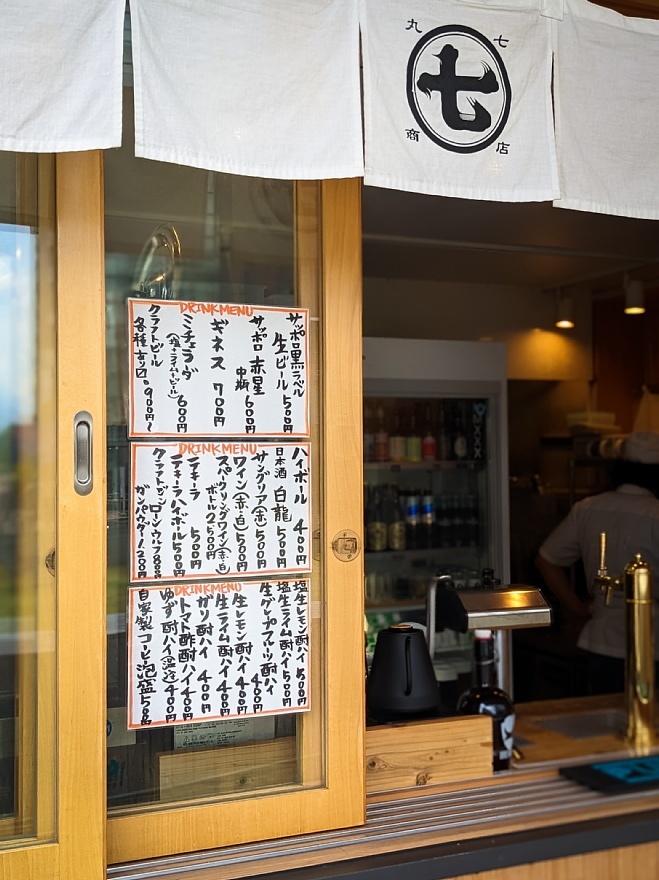 丸七
七
商店
DRINKMENU
サッポロ黒ラベル
生ビール 500円
サッポロ赤星
中瓶 600円
ギネス 700円
ミチェラダ
(塩+ライム+ビール) 600円
クラフトビール
各種 900円〜
DRINKMENU
ハイボール 400円
日本酒 白龍 500円
サングリア(赤) 500円
ワイン(赤・白) 500円
スパークリングワイン(赤・白)
ボトル 2500円
テキーラ 500円
テキーラハイボール 500円
クラフトジン ローンウルフ 800円
ガンパウダー 1200円
DRINKMENU
塩生レモン酎ハイ 500円
塩生ライム酎ハイ 500円
生グレープフルーツ酎ハイ
400円
生レモン酎ハイ 400円
生ライム酎ハイ 400円
ガリ酎ハイ 400円
トマト酢酎ハイ 400円
ゆず酎ハイ 400円
自家製コーヒー泡盛 500円